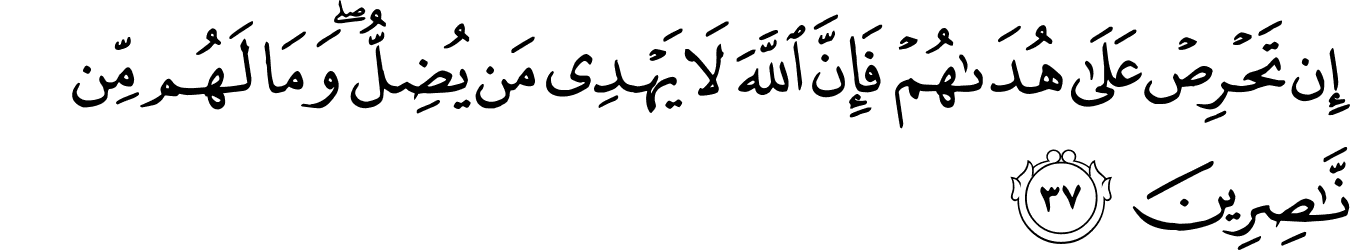 إِن تَحۡرِصۡ عَلَىٰ هُدَىٰهُمۡ فَإِنَّ ٱللَّهَ لَا يَهۡدِي مَن يُضِلُّۖ وَمَا لَهُم مِّن
نَّٰصِرِينَ ٣٧